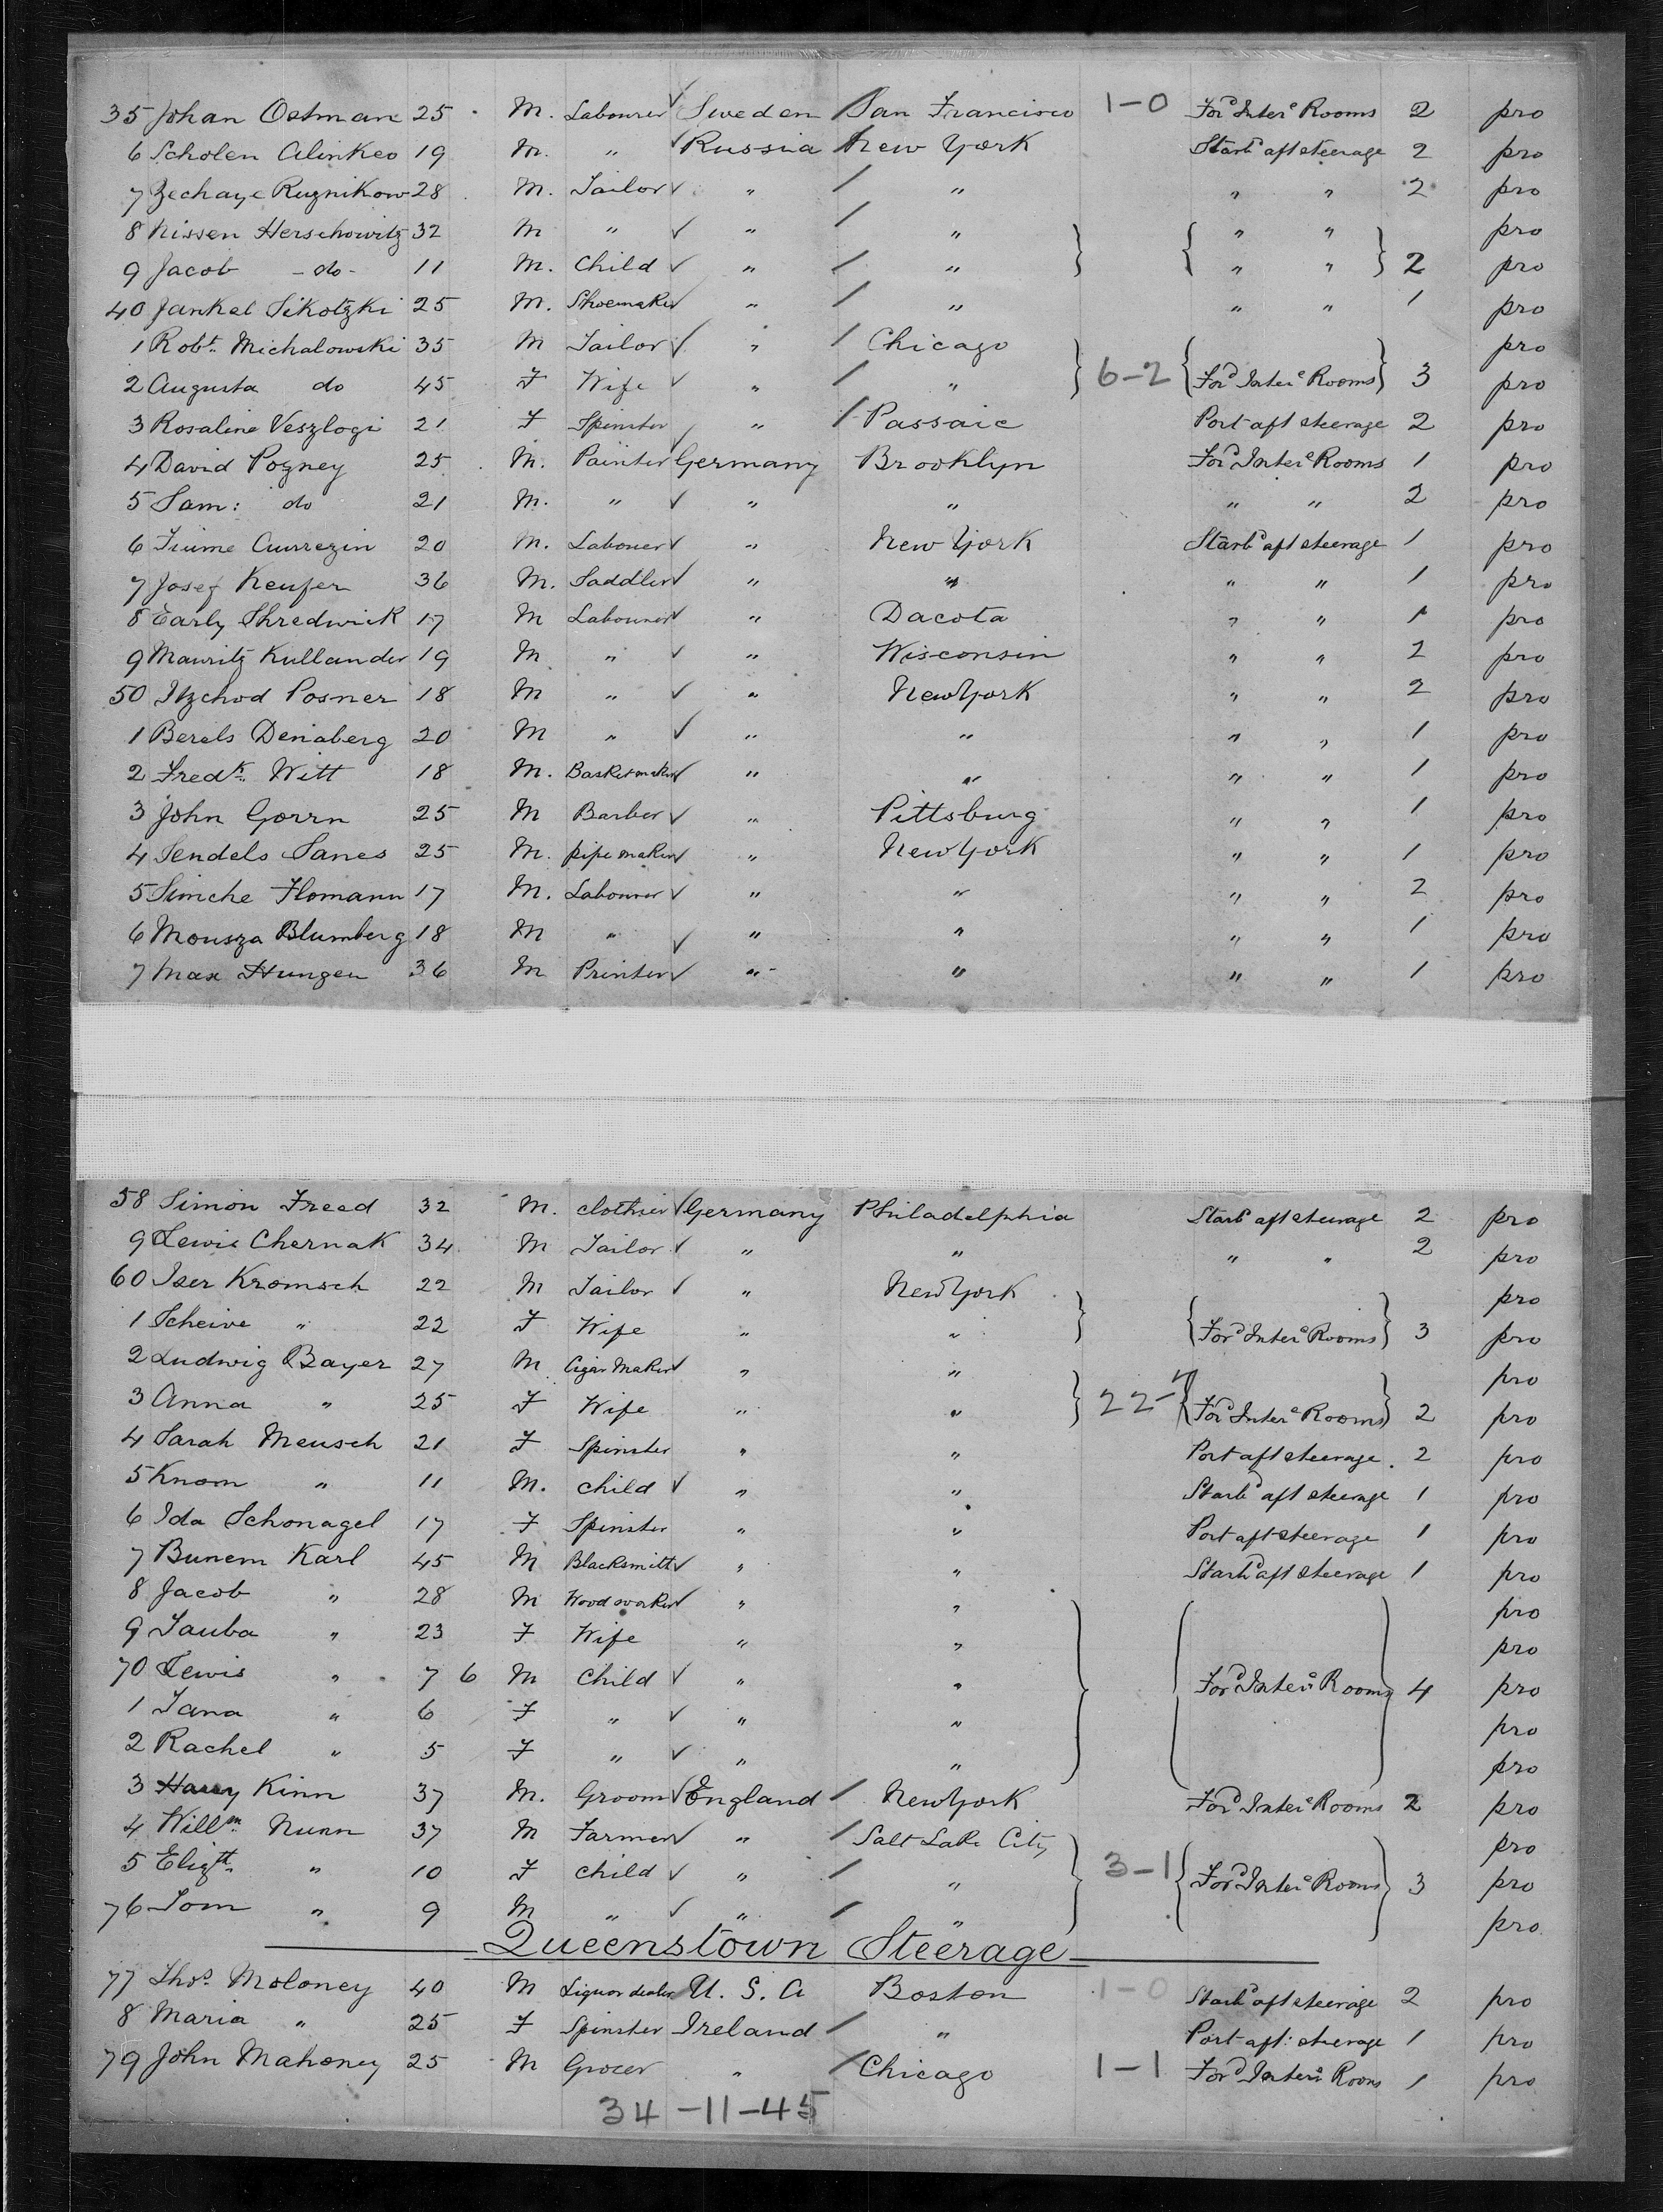 35 Johan Ostman 25 M. Labourer Sweden San Francisco 1-0 Ford Inter Rooms 2 pro
6 Scholen Alinkeo 19 M. " Russia New York Starb aft steerage 2 pro
7 Zechaye Ruznikow 28 M. Tailor " " " " 2 pro
8 Nissen Herschowitz 32 M " " " " " pro
9 Jacob -do- 11 M. Child " " " " 2 pro
40 Jankel Sikotzki 25 M. Shoemaker " " " " 1 pro
1 Robt. Michalowski 35 M Tailor " Chicago pro
2 Augusta do 45 F Wife " " 6-2 Ford Inter Rooms 3 pro
3 Rosaline Veszlogi 21 F Spinster " Passaic Port aft steerage 2 pro
4 David Pogney 25 M. Painter Germany Brooklyn Ford Inter Rooms 1 pro
5 Sam: do 21 M. " " " " " 2 pro
6 Fiume Currezin 20 M. Labouer " New York Starb aft steerage 1 pro
7 Josef Keufer 36 M. Saddler " " " " 1 pro
8 Early Shredwick 17 M Labourer " Dacota " " 1 pro
9 Mauritz Kullander 19 M " " Wisconsin " " 2 pro
50 Itzchod Posner 18 M " " New York " " 2 pro
1 Berels Denaberg 20 M " " " " " 1 pro
2 Fredk. Witt 18 M. Basketmaker " " " " 1 pro
3 John Gorrn 25 M Barber " Pittsburg " " 1 pro
4 Sendels Sanes 25 M. pipe maker " New York " " 1 pro
5 Simche Flomann 17 M. Labourer " " " " 2 pro
6 Mousza Blumberg 18 M " " " " " 1 pro
7 Max Hungen 36 M Printer " " " " 1 pro
58 Simon Freed 32 M. clothier Germany Philadelphia Starb aft steerage 2 pro
9 Lewis Chernak 34 M Tailor " " " " 2 pro
60 Iser Kromsch 22 M Tailor " New York pro
1 Scheive " 22 F Wife " " Ford Inter Rooms 3 pro
2 Ludwig Bayer 27 M Cigar Maker " " pro
3 Anna " 25 F Wife " " 22-4 Ford Inter Rooms 2 pro
4 Sarah Meusch 21 F Spinster " " Port aft steerage. 2 pro
5 Knom " 11 M. child " " Starb aft steerage 1 pro
6 Ida Schonagel 17 F Spinster " " Port aft steerage 1 pro
7 Bunem Karl 45 M Blacksmith " " Starb aft steerage 1 pro
8 Jacob " 28 M Wood worker " " pro
9 Tauba " 23 F Wife " " pro
70 Lewis " 7 6 M Child " " Ford Inter Rooms 4 pro
1 Jana " 6 F " " " pro
2 Rachel " 5 F " " " pro
3 Harry Kinn 37 M. Groom England New York Ford Inter Rooms 2 pro
4 Willm Nunn 37 M Farmer " Salt Lake City pro
5 Elizth. " 10 F child " " 3-1 Ford Inter Rooms 3 pro
76 Tom " 9 M " " " pro
Queenstown Steerage
77 Thos Moloney 40 M Liquor dealer U. S. A Boston 1-0 Starb aft steerage 2 pro
8 Maria " 25 F Spinster Ireland " Port aft: steerage 1 pro
79 John Mahoney 25 M Grocer " Chicago 1-1 Ford Inter Rooms 1 pro
34-11-45